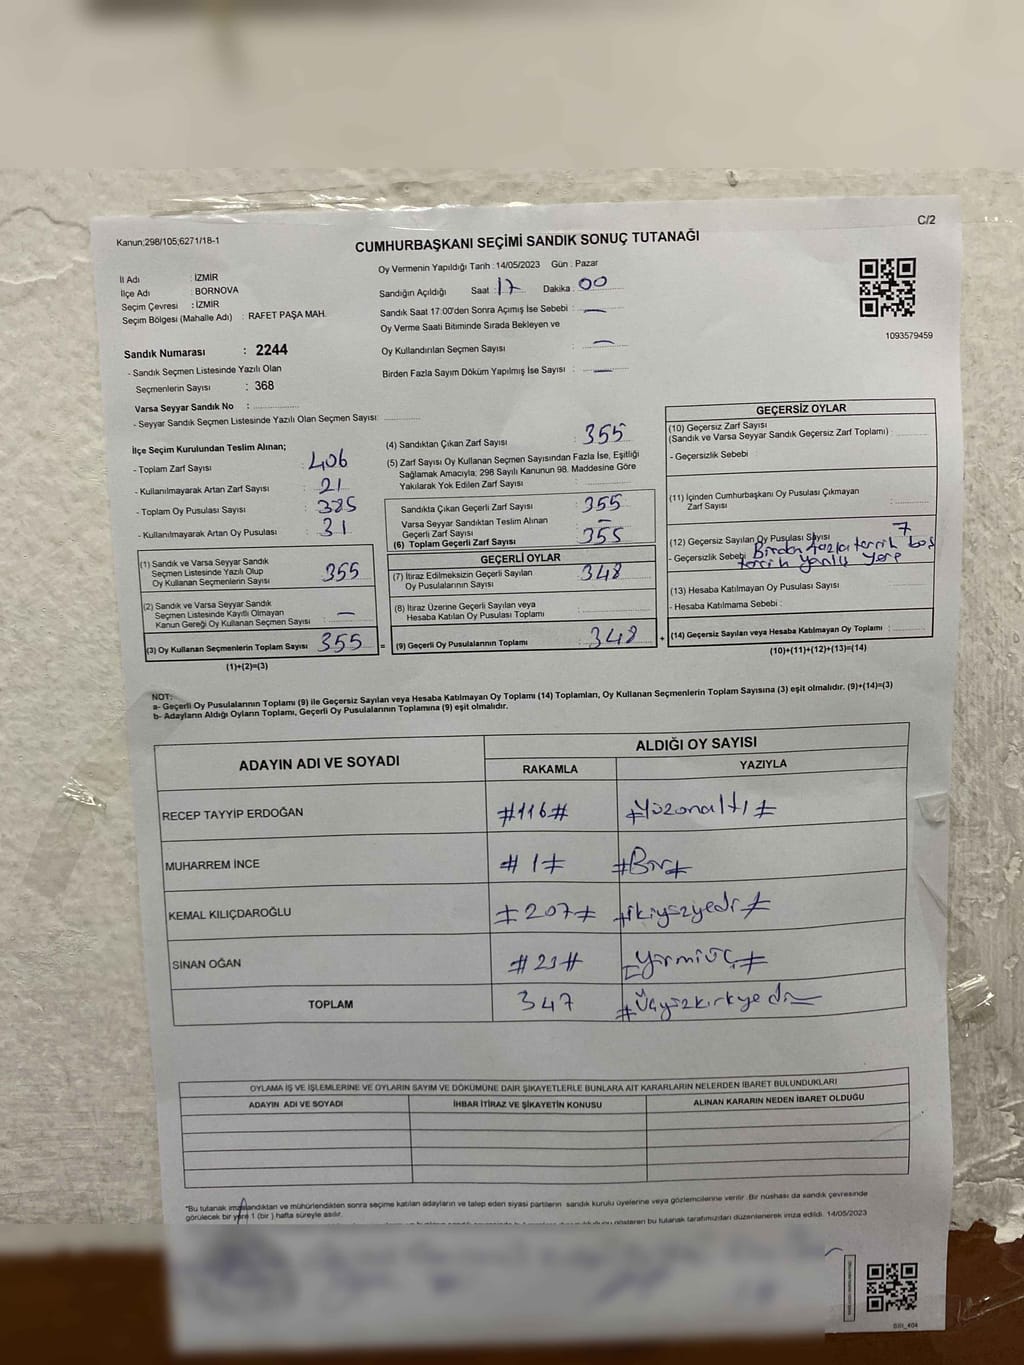 C/2
Kanun;298/105;6271/18-1
CUMHURBAŞKANI SEÇİMİ SANDIK SONUÇ TUTANAĞI
İl Adı : İZMİR
İlçe Adı : BORNOVA
Seçim Çevresi : İZMİR
Seçim Bölgesi (Mahalle Adı) : RAFET PAŞA MAH.
Sandık Numarası : 2244
- Sandık Seçmen Listesinde Yazılı Olan
Seçmenlerin Sayısı : 368
Varsa Seyyar Sandık No :
- Seyyar Sandık Seçmen Listesinde Yazılı Olan Seçmen Sayısı:
Oy Vermenin Yapıldığı Tarih : 14/05/2023 Gün : Pazar
Sandığın Açıldığı Saat : 17 Dakika : 00
Sandık Saat 17:00'den Sonra Açımış İse Sebebi : —
Oy Verme Saati Bitiminde Sırada Bekleyen ve
Oy Kullandırılan Seçmen Sayısı : —
Birden Fazla Sayım Döküm Yapılmış İse Sayısı : —
1093579459
İlçe Seçim Kurulundan Teslim Alınan;
- Toplam Zarf Sayısı : 406
- Kullanılmayarak Artan Zarf Sayısı : 21
- Toplam Oy Pusulası Sayısı : 385
- Kullanılmayarak Artan Oy Pusulası : 31
(1) Sandık ve Varsa Seyyar Sandık
Seçmen Listesinde Yazılı Olup
Oy Kullanan Seçmenlerin Sayısı : 355
(2) Sandık ve Varsa Seyyar Sandık
Seçmen Listesinde Kayıtlı Olmayan
Kanun Gereği Oy Kullanan Seçmen Sayısı : —
(3) Oy Kullanan Seçmenlerin Toplam Sayısı 355 =
(1)+(2)=(3)
(4) Sandıktan Çıkan Zarf Sayısı : 355
(5) Zarf Sayısı Oy Kullanan Seçmen Sayısından Fazla İse, Eşitliği
Sağlamak Amacıyla; 298 Sayılı Kanunun 98. Maddesine Göre
Yakılarak Yok Edilen Zarf Sayısı :
Sandıkta Çıkan Geçerli Zarf Sayısı : 355
Varsa Seyyar Sandıktan Teslim Alınan
Geçerli Zarf Sayısı : —
(6) Toplam Geçerli Zarf Sayısı 355
GEÇERLİ OYLAR
(7) İtiraz Edilmeksizin Geçerli Sayılan
Oy Pusulalarının Sayısı : 348
(8) İtiraz Üzerine Geçerli Sayılan veya
Hesaba Katılan Oy Pusulası Toplamı :
(9) Geçerli Oy Pusulalarının Toplamı : 348 +
GEÇERSİZ OYLAR
(10) Geçersiz Zarf Sayısı
(Sandık ve Varsa Seyyar Sandık Geçersiz Zarf Toplamı) :
- Geçersizlik Sebebi
(11) İçinden Cumhurbaşkanı Oy Pusulası Çıkmayan
Zarf Sayısı :
(12) Geçersiz Sayılan Oy Pusulası Sayısı 7
- Geçersizlik Sebebi Birden fazla tercih boş
tercih yanlış yere
(13) Hesaba Katılmayan Oy Pusulası Sayısı
- Hesaba Katılmama Sebebi :
(14) Geçersiz Sayılan veya Hesaba Katılmayan Oy Toplamı :
(10)+(11)+(12)+(13)=(14)
NOT:
a- Geçerli Oy Pusulalarının Toplamı (9) ile Geçersiz Sayılan veya Hesaba Katılmayan Oy Toplamı (14) Toplamları, Oy Kullanan Seçmenlerin Toplam Sayısına (3) eşit olmalıdır. (9)+(14)=(3)
b- Adayların Aldığı Oyların Toplamı, Geçerli Oy Pusulalarının Toplamına (9) eşit olmalıdır.
ADAYIN ADI VE SOYADI
ALDIĞI OY SAYISI
RAKAMLA YAZIYLA
RECEP TAYYİP ERDOĞAN #116# #Yüzonaltı#
MUHARREM İNCE #1# #Bir#
KEMAL KILIÇDAROĞLU #207# #ikiyüzyedi#
SİNAN OĞAN #23# #Yirmiüç#
TOPLAM 347 #Üçyüzkırkyedi
OYLAMA İŞ VE İŞLEMLERİNE VE OYLARIN SAYIM VE DÖKÜMÜNE DAİR ŞİKAYETLERLE BUNLARA AİT KARARLARIN NELERDEN İBARET BULUNDUKLARI
ADAYIN ADI VE SOYADI İHBAR İTİRAZ VE ŞİKAYETİN KONUSU ALINAN KARARIN NEDEN İBARET OLDUĞU
*Bu tutanak imzalandıktan ve mühürlendikten sonra seçime katılan adayların ve talep eden siyasi partilerin sandık kurulu üyelerine veya gözlemcilerine verilir. Bir nüshası da sandık çevresinde
görülecek bir yere 1 (bir) hafta süreyle asılır.
gösteren bu tutanak tarafımızdan düzenlenerek imza edildi. 14/05/2023